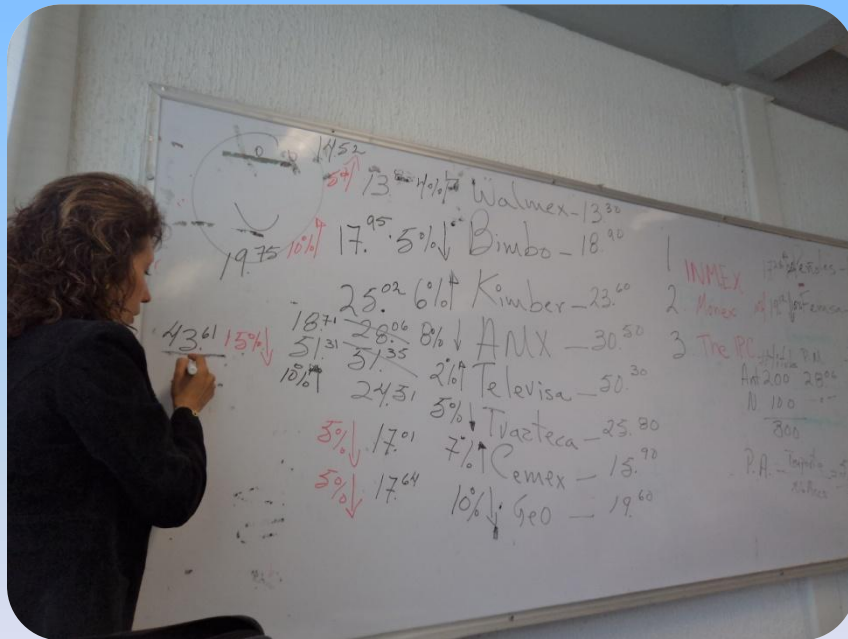 14.52
5% 13. 4% Walmex - 13.30
19.75 10% 17.95 5% ↓ Bimbo - 18.90
25.02 6% ↑ Kimber - 23.60
18.71 28.06 8% ↓ AMX - 30.50
43.61 15% ↓ 51.31 51.35 2% ↑ Televisa - 50.30
10% ↑ 24.51 5% ↓ Tvazteca - 25.80
5% ↓ 17.01 7% ↑ Cemex - 15.90
5% ↓ 17.64 10% ↓ Geo - 19.60
1 INMEX
2. Monex
3 The IPC
P.N.
Ant 200 28.06
N. 100
300
P.A.